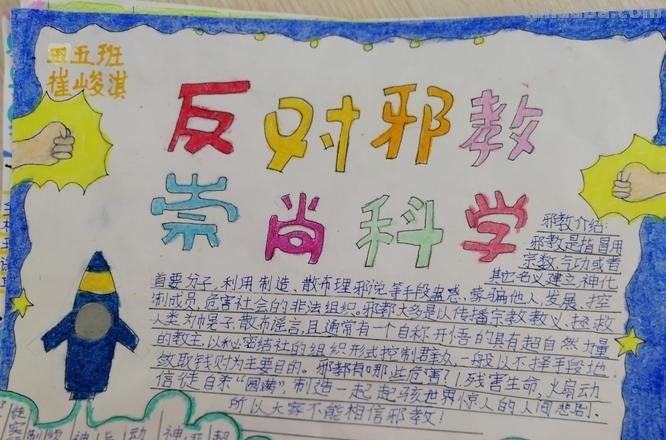 四五班
崔峻淇
反对邪教
崇尚科学
邪教介绍:
邪教是指冒用
宗教、气功或者
其它名义建立、神化
首要分子,利用制造、散布理邪说等手段蛊惑、蒙骗他人,发展、控
制成员,危害社会的非法组织。邪教大多是以传播宗教教义、拯救
人类为巾晃子,散布谣言,且通常有一个自称开悟的具有超自然力量
的教主,以秘密结社的组织形式控制群众,一般以不择手段地
敛取钱财为主要目的。邪教有哪些危害?1,残害生命,火扇动
信徒自杀“圆满”,制造一起起骇世界惊人的人间悲剧。
所以大家不能相信邪教!